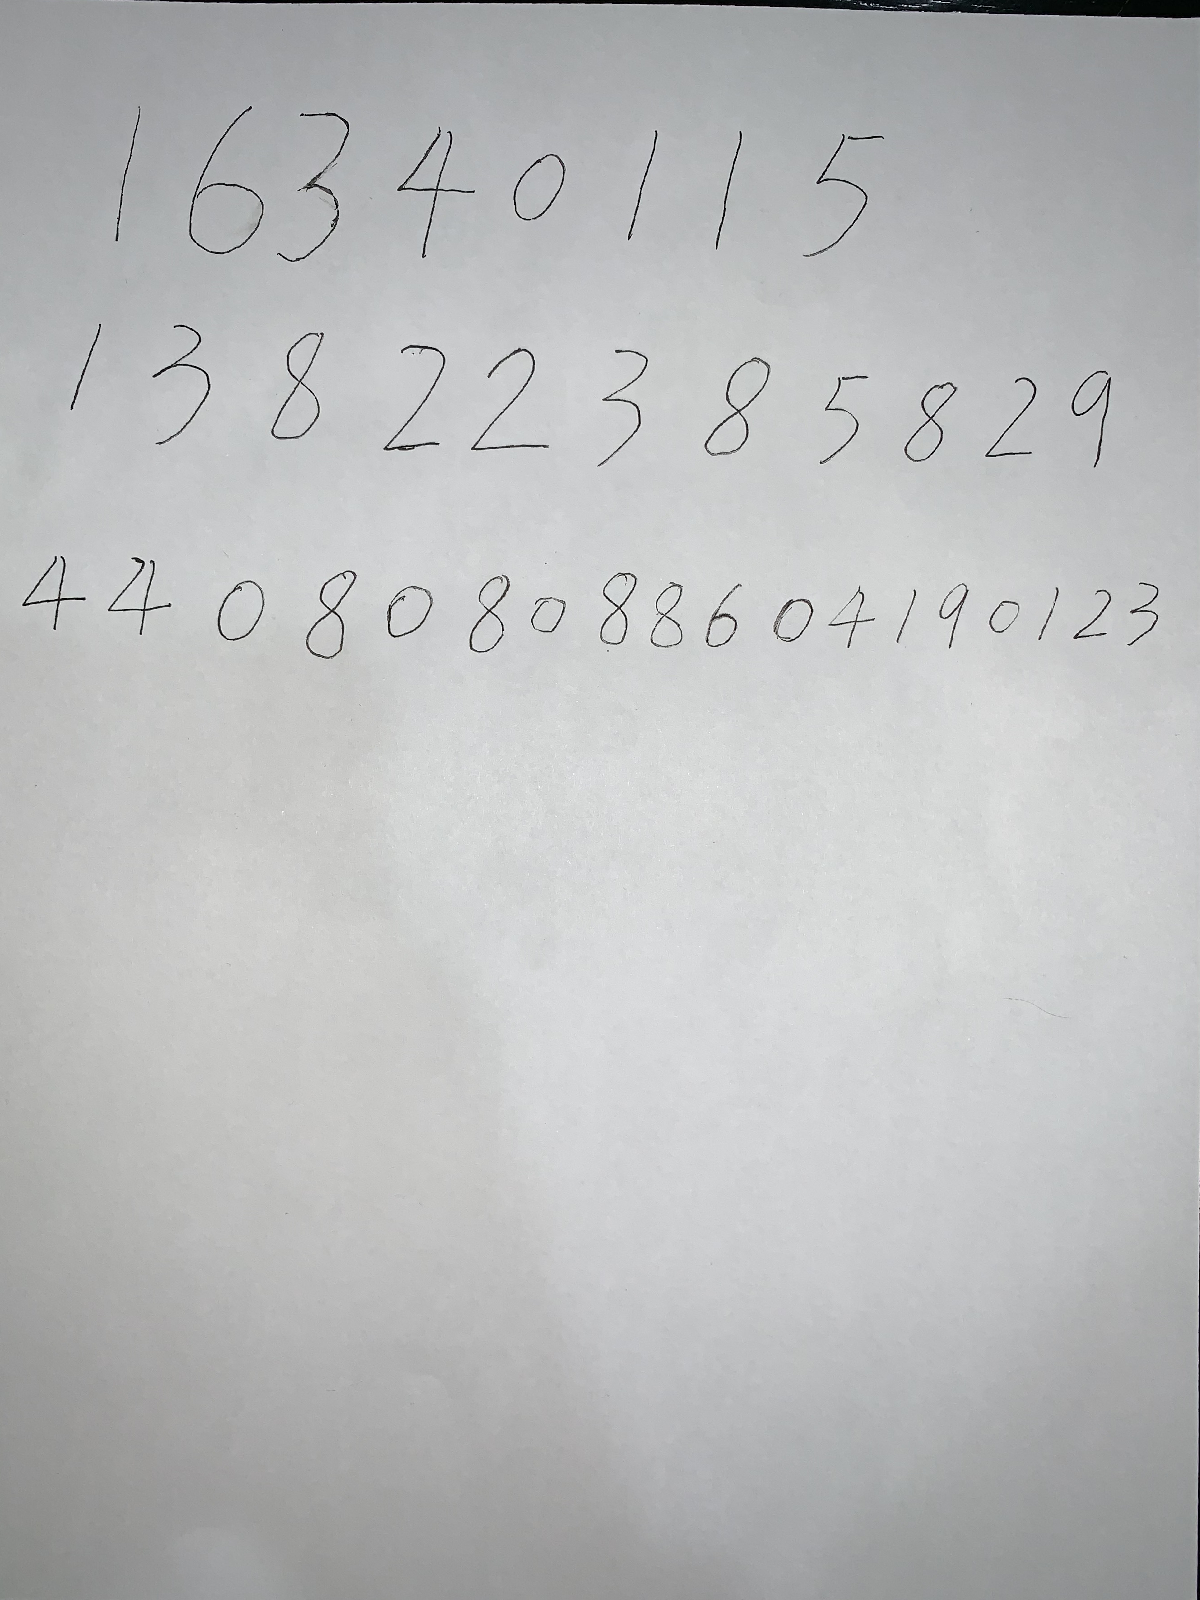 16340115
13822385829
440808088604190123